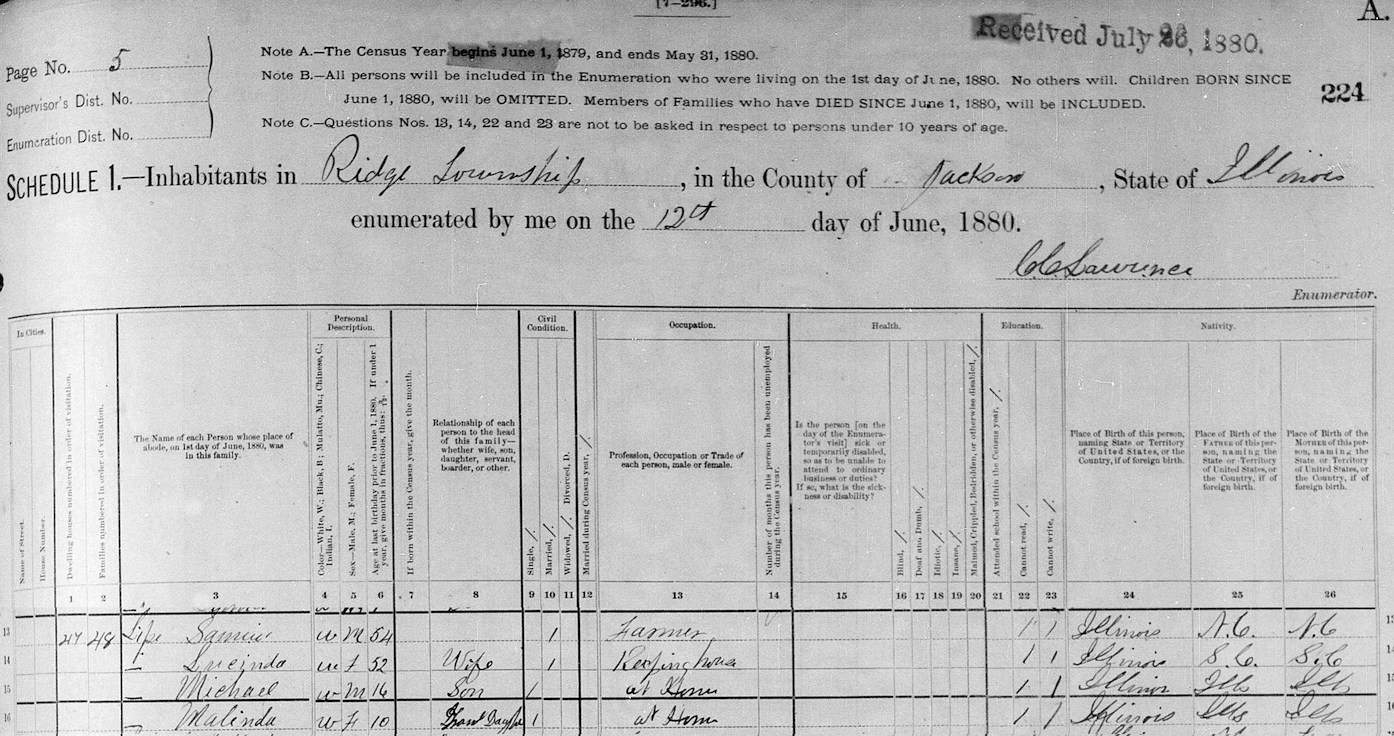 [7-296.]
A.
Received July 26, 1880.
Page No. 5
Supervisor's Dist. No.
Enumeration Dist. No.
Note A.—The Census Year begins June 1, 1879, and ends May 31, 1880.
Note B.—All persons will be included in the Enumeration who were living on the 1st day of June, 1880. No others will. Children BORN SINCE
June 1, 1880, will be OMITTED. Members of Families who have DIED SINCE June 1, 1880, will be INCLUDED.
Note C.—Questions Nos. 13, 14, 22 and 23 are not to be asked in respect to persons under 10 years of age.
224
SCHEDULE 1.—Inhabitants in Ridge Township, in the County of Jackson, State of Illinois
enumerated by me on the 12th day of June, 1880.
C.C. Lawrence
Enumerator.
In Cities.
Name of Street.
House Number.
Dwelling houses numbered in order of visitation.
Families numbered in order of visitation.
The Name of each Person whose place of
abode, on 1st day of June, 1880, was
in this family.
Personal
Description.
Color—White, W.; Black, B; Mulatto, Mu.; Chinese, C.;
Indian, I.
Sex—Male, M.; Female, F.
Age at last birthday prior to June 1, 1880. If under 1
year, give months in fractions, thus:
If born within the Census year, give the month.
Relationship of each
person to the head
of this family—
whether wife, son,
daughter, servant,
boarder, or other.
Civil
Condition.
Single, /.
Married, /.
Widowed, /. Divorced, D.
Married during Census year, /.
Occupation.
Profession, Occupation or Trade of
each person, male or female.
Number of months this person has been unemployed
during the Census year.
Health.
Is the person [on the
day of the Enumera-
tor's visit] sick or
temporarily disabled,
so as to be unable to
attend to ordinary
business or duties?
If so, what is the sick-
ness or disability?
Blind, /.
Deaf and Dumb, /.
Idiotic, /.
Insane, /.
Maimed, Crippled, Bedridden, or otherwise disabled, /.
Education.
Attended school within the Census year, /.
Cannot read, /.
Cannot write, /.
Nativity.
Place of Birth of this person,
naming State or Territory
of United States, or the
Country, if of foreign birth.
Place of Birth of the
FATHER of this per-
son, naming the
State or Territory
of United States, or
the Country, if of
foreign birth.
Place of Birth of the
MOTHER of this per-
son, naming the
State or Territory
of United States, or
the Country, if of
foreign birth.
1 2 3 4 5 6 7 8 9 10 11 12 13 14 15 16 17 18 19 20 21 22 23 24 25 26
13 47 48 Lipe W M 54 / Farmer / / Illinois N.C. N.C 13
14 — Lucinda W F 52 Wife / Keeping house / / Illinois S.C. S.C 14
15 — Michael W M 16 Son / at Home / / Illinois Ills Ills 15
16 — Malinda W F 10 / at Home / / Illinois Ills Ills 16